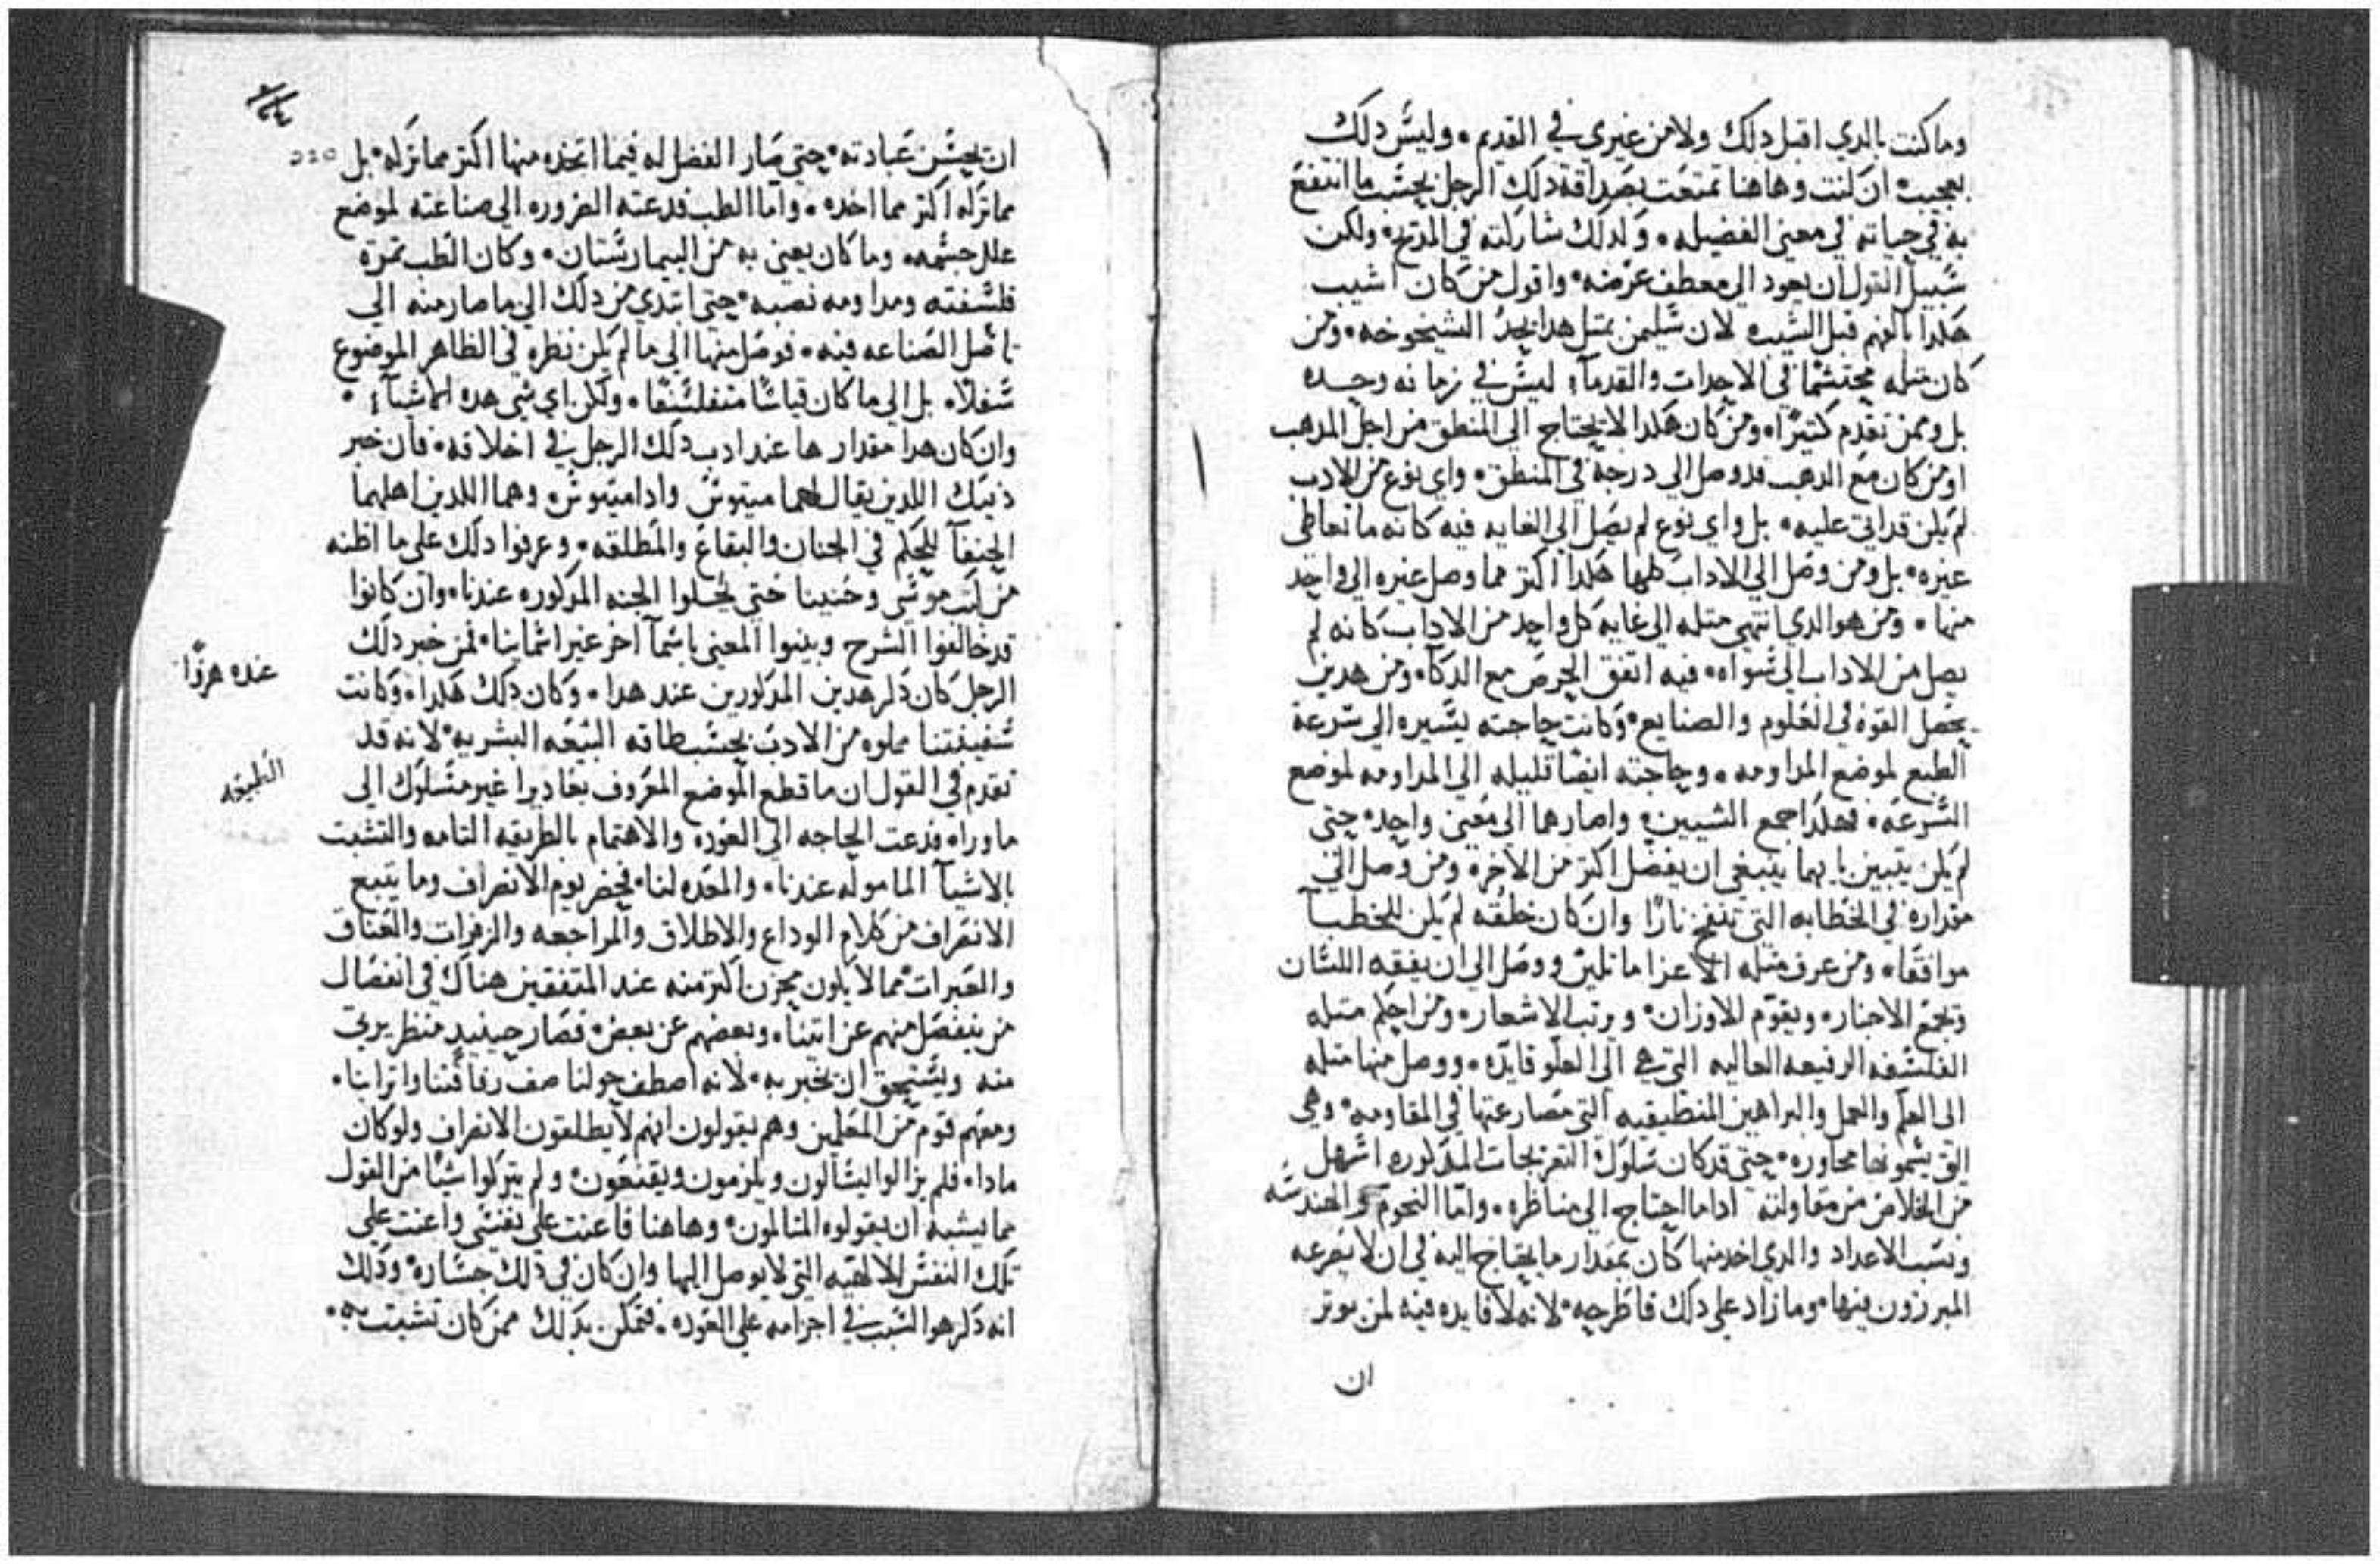 وما كنت بالدي اقبل دلك ولا من غيري في القديم • وليس دلك
بعجيب ان كنت وهاهنا تمتعت بصداقة دلك الرجل بحسب ما انتفع
به في حياته في معني الفضيله • ولدلك شاركته في المدتح • ولكن
سبيل القول ان يعود الي معطف عرضه • واقول من كان اشيب
هكدا بالفهم قبل الشيب لان سليمن بمثل هدا يحد الشيخوخه • ومن
كان مثله محتشما في الاحداث والقدمآ؛ ليس في زمانه وحده
بل وممن تقدم كثيرًا • ومن كان هكدا لا يحتاج الي المنطق من اجل المدهب
او من كان مع الدهب قد وصل الي درجة في المنطق • واي نوع من الادب
لم يكن قد اتي عليه • بل واي نوع لم يصل الي الغايه فيه كانه ما تعاطي
غيره • بل ومن وصل الي الاداب كلها هكدا اكتر مما وصل غيره الي واحد
منها • ومن هو الدي انتهي مثله الي غاية كل واحد من الاداب كانه لم
يصل من الاداب الي سواه • فيه اتفق الحرص مع الدكآ • ومن هدين
يحصل القوه في العلوم والصنايع • وكانت حاجته يسيره الي سرعة
الطبع لموضع المداومه • وحاجته ايضا قليله الي المداومه لموضع
السرعه • فهكدا جمع الشيين • واصارهما الي معني واحد • حتي
لم يكن يتبين بايهما ينبغي ان يفضل اكتر من الاخر • ومن وصل الي
مقداره في الخطابه التي تنفخ نارًا وان كان خلقه لم يكن للخطبآ
موافقا • ومن عرف مثله الاعراماتليق ووصل الي ان يفقه اللسان
وتجمع الاخبار • ويقوّم الاوزان • ويرتب الاشعار • ومن احكم مثله
الفلسفه الرفيعه العاليه التي هي الي العلو قايده • ووصل منها مثله
الي العلم والعمل والبراهين المنطيقيه التي مصارعتها في المقاومه • وهي
التي يسمونها محاوره • حتي قد كان سلوك التعريجات المدكوره اسهل
من الخلاص من مقاولته اداما احتاج الي مناظره • واما النجوم والهندسه
ونسب الاعداد والدي اخد منها كان بمقدار ما يحتاج اليه في ان لا يصرعه
المبرزون فيها • وما زاد علي دلك فاطرحه • لانه لا فايده فيه لمن يوتر
ان
ان يحسن عبادته • حتي صار الفضل له فيما اتخذه منها اكتر مما تركه • بل
مما تركه اكتر مما اخده • واما الطب فدعته الضروره الي صناعته لموضع
علل جسمه • وما كان يعني به من البيمارستان • وكان الطب تمرة
فلسفته ومداومه نصبه • حتي ابتدي من دلك الي ما صار منه الي
تاصل الصناعه فيه • فوصل منها الي ما لم يكن نظره في الظاهر الموضوع
سفلًا • بل الي ما كان قياسًا متفلسفًا • ولكن اي شي هده الاشيآ؛ •
وان كان هدا مقدارها عند ادب دلك الرجل في اخلاقه • فان خبر
دنيك اللدين يقال لهما مينوس واداميتوس • وهما اللدين اهلهما
الحنفآ للحكم في الجنان والبقاع والمطلقه • وعرفوا دلك علي ما اظنه
من كتب موسي وحنينا حتي يحلوا الجنه المدكوره عندنا • وان كانوا
قد خالفوا الشرح وبينوا المعني باسمآ اخر غير اسماينا • لمن خبر دلك
الرجل كان دكر هدين المدكورين عند هدا • وكان دلك هكدا • وكانت
عنده هزوًا
سفينتنا مملوه من الادب بحسب طاقه البيعه البشريه • لانه قد
الطبيعه
تقدم في القول ان ما قطع الموضع المعروف بغاديرا غير مسلوك الي
ما وراه فدعت الحاجه الي العوده والاهتمام بالطريقه التامه والتشبت
بالاشيآ الماموله عندنا • والمعده لنا • فحضر يوم الانصراف وما يتبع
الانصراف من كلام الوداع والاطلاق والمراجعه والزفرات والعناق
والعبرات مما لا يكون بحزن اكتر منه عند المتفقين هناك في انفصال
من ينفصل منهم عن اتينا • وبعضهم عن بعض • فصار حينيد منظر يرتي
منه ويستحق ان يخبر به • لانه اصطف حولنا صف رفاقتنا واترابنا •
ومعهم قوم من المعلمين وهم يقولون انهم لا يطلقون الانصراف ولو كان
مادا • فلم يزالوا يسالون ويلزمون ويقنعون • ولم يتركوا شيًا من القول
مما يشبه ان يقولوه المتالمون • وهاهنا فاعنت علي نفسي واعنت علي
تلك النفس الالاهيه التي لا يوصل اليها وان كان في دلك جساره • ودلك
انه دكر هو السبب في اجرامه علي العوده • فتمكن بدلك ممن كان تشبت به •